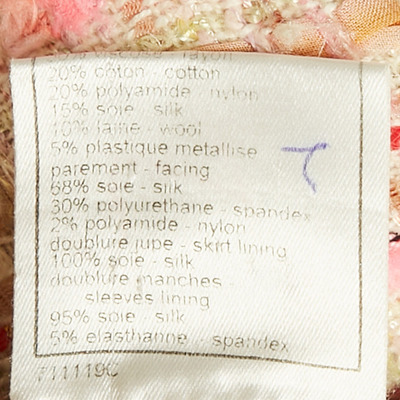 rayon
20% coton - cotton
20% polyamide - nylon
15% soie - silk
10% laine - wool
5% plastique metallise
parement - facing
68% soie - silk
30% polyurethane - spandex
2% polyamide - nylon
doublure jupe - skirt lining
100% soie - silk
doublure manches -
sleeves lining
95% soie - silk
5% elasthanne - spandex